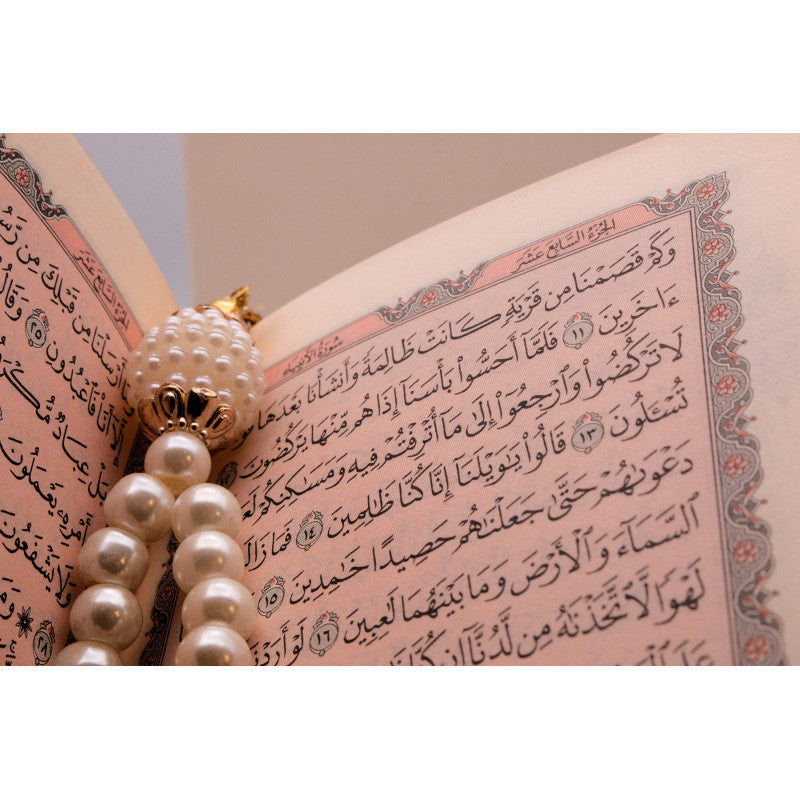 الجُزْءُ السَّابِعَ عَشَرَ
سُورَةُ الأَنبِيَاءِ
وَكَمْ قَصَمْنَا مِن قَرْيَةٍ كَانَتْ ظَالِمَةً وَأَنشَأْنَا بَعْدَهَا
ءَاخَرِينَ ١١ فَلَمَّآ أَحَسُّوا۟ بَأْسَنَآ إِذَا هُم مِّنْهَا يَرْكُضُونَ ١٢
لَا تَرْكُضُوا۟ وَٱرْجِعُوٓا۟ إِلَىٰ مَآ أُتْرِفْتُمْ فِيهِ وَمَسَٰكِنِكُمْ
تُسْـَٔلُونَ ١٣ قَالُوا۟ يَٰوَيْلَنَآ إِنَّا كُنَّا ظَٰلِمِينَ ١٤ فَمَا زَالَ
دَعْوَىٰهُمْ حَتَّىٰ جَعَلْنَٰهُمْ حَصِيدًا خَٰمِدِينَ ١٥
ٱلسَّمَآءَ وَٱلْأَرْضَ وَمَا بَيْنَهُمَا لَٰعِبِينَ ١٦ لَوْ أَرَدْنَ
لَهْوًا لَّٱتَّخَذْنَٰهُ مِن لَّدُنَّآ إِن كُنَّا
الجُزْءُ السَّابِعَ عَشَرَ
أَرْسَلْنَا مِن قَبْلِكَ مِن رَّسُ
إِلَّآ أَنَا۠ فَٱعْبُدُونِ ٢٥ وَقَالُ
بَلْ عِبَادٌ مُّكْرَ
بِأَمْرِهِۦ يَعْمَلُونَ
وَلَا يَشْفَعُونَ
٢٨ وَمَ